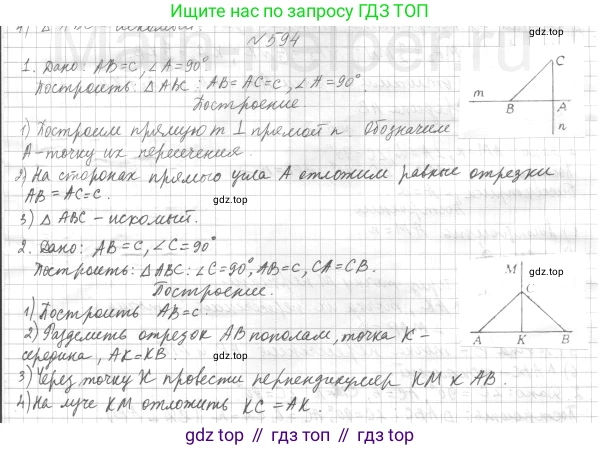 Ищите нас по запросу ГДЗ ТОП
gdz.top
№594
1. Дано: AB=c, ∠A=90°
Построить: △ABC: AB=AC=c, ∠A=90°
Построение
1) Построим прямую m ⊥ прямой n Обозначим
A-точку их пересечения.
2) На сторонах прямого угла A отложим равные отрезки
AB=AC=c.
3) △ABC-искомый.
m
B
A
C
n
gdz.top
2. Дано: AB=c, ∠C=90°
Построить: △ABC: ∠C=90°, AB=c, CA=CB.
Построение.
1) Построить AB=c
2) Разделить отрезок AB пополам, точка K-
середина, AK=KB.
3) Через точку K провести перпендикуляр KM к AB.
4) На луче KM отложить KC=AK.
M
C
A
K
B
gdz.top
gdz top // гдз топ // gdz.top